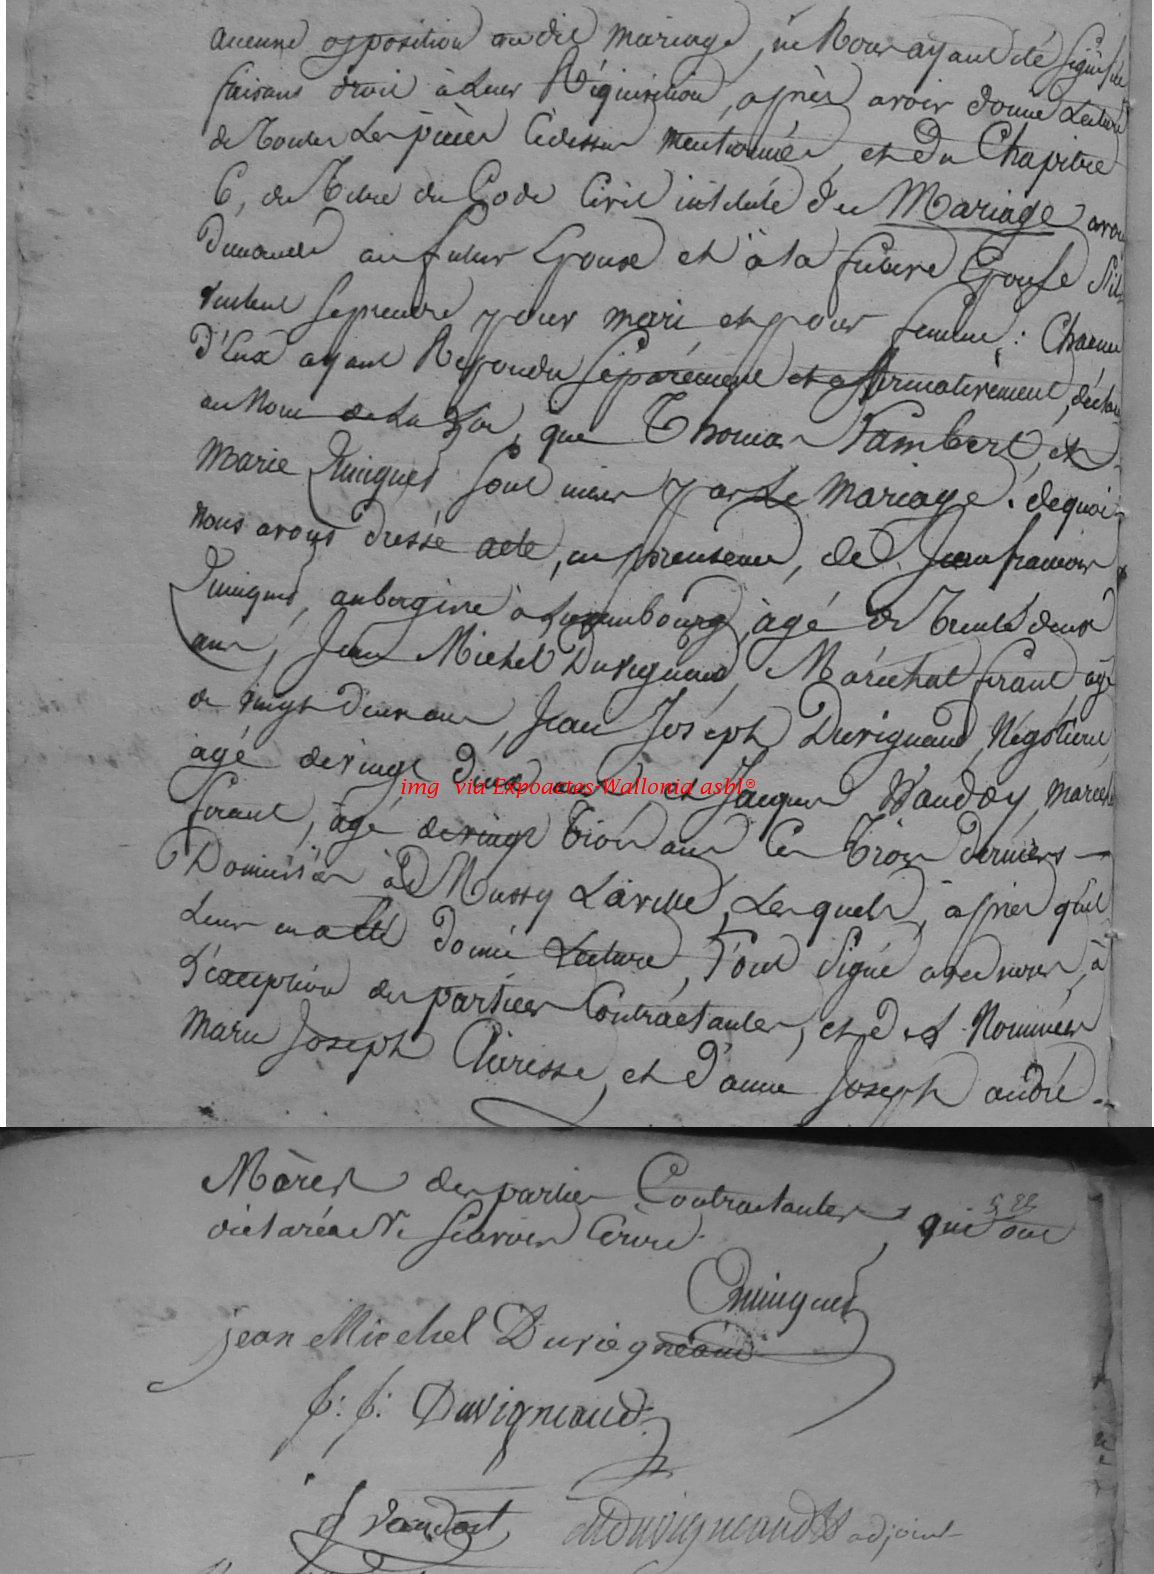 aucune opposition audit mariage, ne Nous ayant été Signifiée
faisant droit à Leur Réquisition, après avoir donné Lecture
de Toutes Les pièces Cidessus mentionnées, et du Chapitre
6, du Titre du Code Civil intitulé du Mariage avons
demandé au futur Epoux et à la future Epouse S'ils
veulent Se prendre pour mari et pour femme; Chacun
d'Eux ayant Repondu Séparément et affirmativement, déclarons
au Nom de La Loi, que Thomas Lambert, et
Marie Quinquet Sont unis par Le Mariage. dequoi
nous avons dressé acte, en présence, de Jean françois
Quinquet, aubergiste à Luxembourg, agé de Trente deux
ans, Jean Michel Duvigneaud, Maréchal férant, agé
de Vingt deux ans, Jean Joseph Duvigneaud, Négotient,
agé de vingt deux ans et Jacques Vaudoy, marechal
img via Expoactes-Wallonia asbl®
férant, agé de vingt trois ans Les Trois derniers
Domiciliés à Mussy Laville, Lesquels, après qu'il
Leur en a été donné Lecture, l'ont Signé avec nous, à
l'éxception des parties Contractantes, et des Nommées
Marie Joseph et d'anne Joseph andré
Mères des parties Contractantes, qui ont
déclarées Ne Scavoir Ecrire.
Quinquet
jean Michel Duvigneaud
J: J: Duvigneaud
J Vaudoit
Duvigneaud adjoint